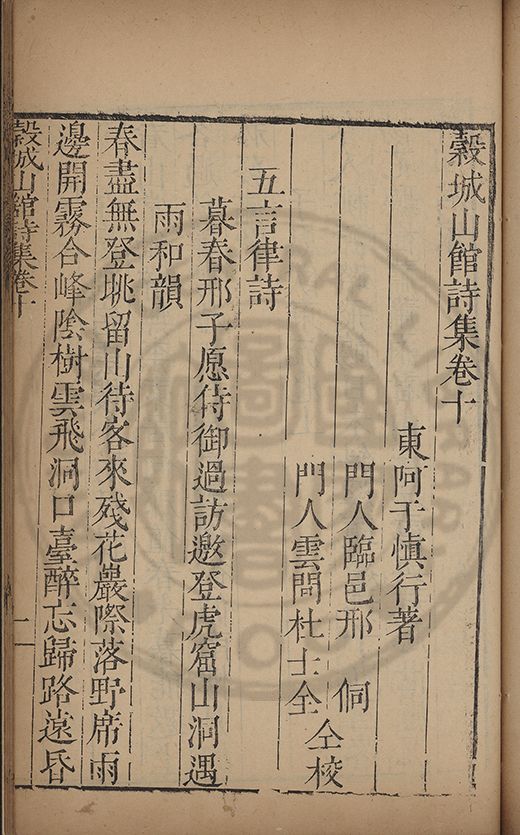 穀城山館詩集卷十
東阿于慎行著
門人臨邑邢 侗
門人雲間杜士全 仝校
五言律詩
暮春邢子愿侍御過訪邀登虎窟山洞遇
雨和韻
春盡無登眺留山待客來殘花巖際落野席雨
邊開霧合峰陰樹雲飛洞口臺醉忘歸路遠昏
穀城山館詩集卷十